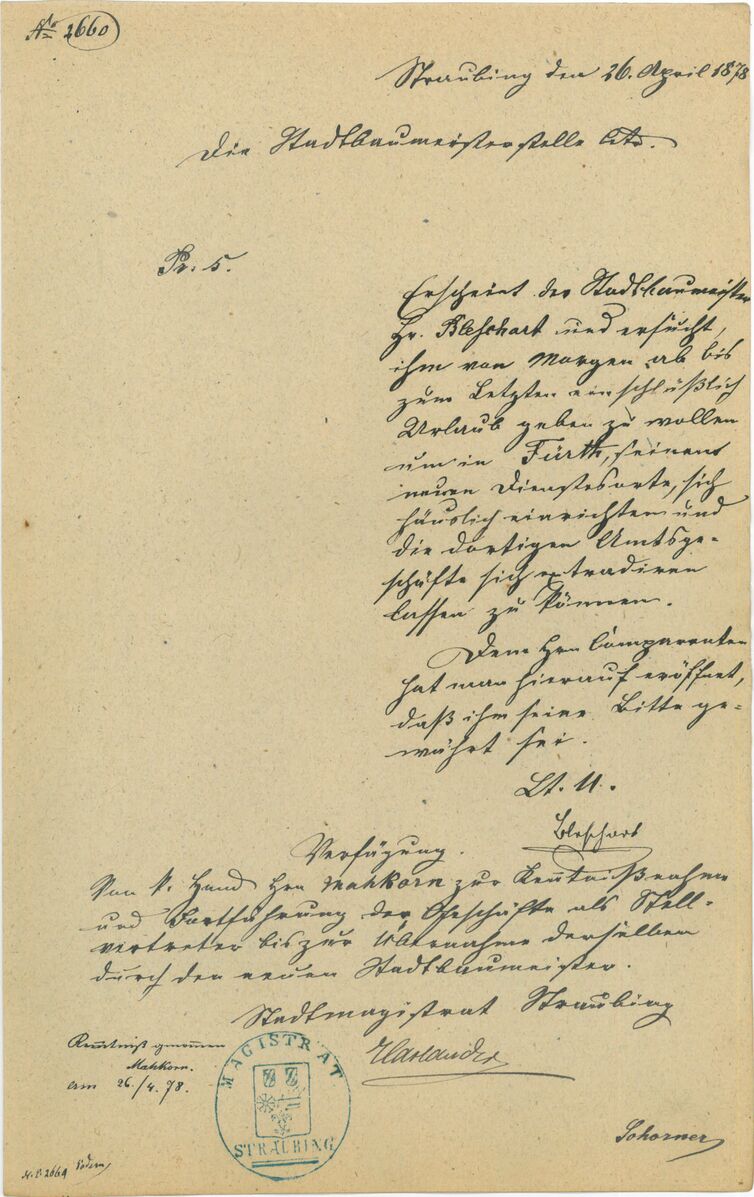 No 2660
Straubing den 26. April 1878
Die Stadtbaumeisterstelle btr.
Pr. 5.
Erscheint der Stadtbaumeister
Hr. Bleschart und ersucht,
ihm von Morgen ab bis
zum Letzten einschlüßlich
Urlaub geben zu wollen
um in Fürth, seinem
neuen Dienstesorte, sich
häuslich einrichten und
die dortigen Amtsge-
schäfte sich extradiren
lassen zu können.
Dem Hrn Comparenten
hat man hierauf eröffnet,
daß ihm seine Bitte ge-
währt sei.
Lt. U.
Bleschart
Verfügung.
Von k. Hand Hrn Mahkorn zur Kenntnißnahme
und Fortführung der Geschäfte als Stell-
vertreter bis zur Übernahme derselben
durch den neuen Stadtbaumeister.
Stadtmagistrat Straubing
Harlander
Kenntniß genommen
Mahkorn.
am 26./4. 78.
MAGISTRAT
STRAUBING
Schorner
2664